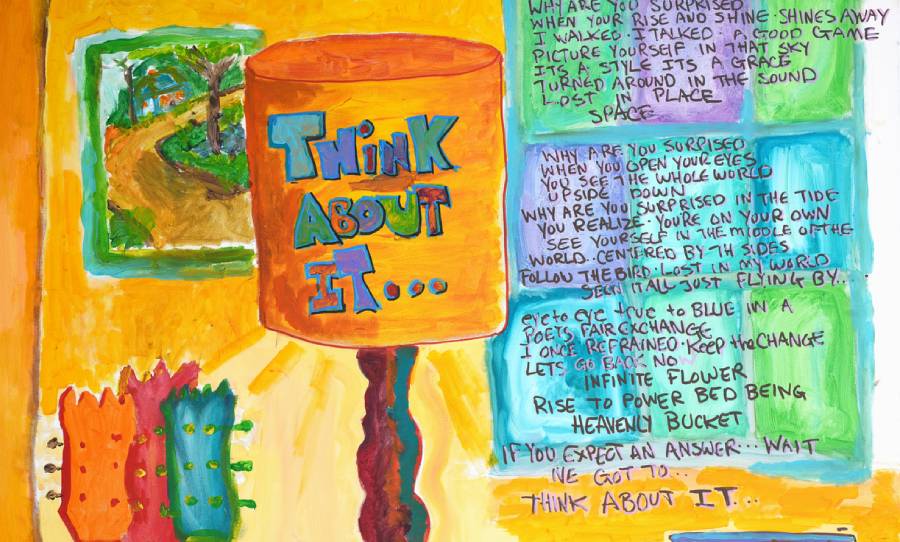 THINK
ABOUT
IT...
WHY ARE YOU SURPRISED
WHEN YOUR RISE AND SHINE · SHINES AWAY
I WALKED · I TALKED · A GOOD GAME
PICTURE YOURSELF IN THAT SKY
ITS A STYLE ITS A GRACE
TURNED AROUND IN THE SOUND
LOST IN PLACE
SPACE
WHY ARE YOU SURPISED
WHEN YOU OPEN YOUR EYES
YOU SEE THE WHOLE WORLD
UPSIDE DOWN
WHY ARE YOU SURPRISED IN THE TIDE
YOU REALIZE · YOU'RE ON YOUR OWN
SEE YOURSELF IN THE MIDDLE OF THE
WORLD · CENTERED BY TH SIDES
FOLLOW THE BIRD · LOST IN MY WORLD
SEEN IT ALL JUST FLYING BY..
eye to eye true to BLUE IN A
POETS FAIR EXCHANGE
I ONCE REFRAINED · Keep the CHANGE
LETS GO BACK NOW
INFINITE FLOWER
RISE TO POWER BED BEING
HEAVENLY BUCKET
IF YOU EXPECT AN ANSWER... WAIT
IVE GOT TO...
THINK ABOUT IT...